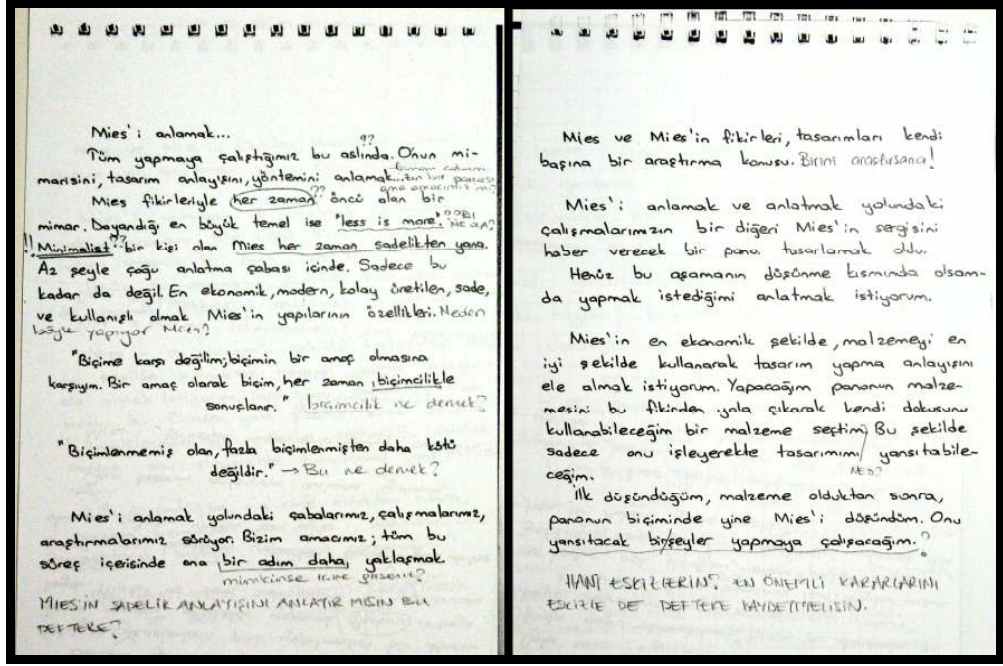 Mies'i anlamak...
??
Tüm yapmaya çalıştığımız bu aslında. Onun mi-
marisini, tasarım anlayışını, yöntemini anlamak...
bir parçası
ama amacımız mı?
??
Mies fikirleriyle her zaman öncü olan bir
mimar. Dayandığı en büyük temel ise "less is more".
NE DA?
!! Minimalist ?? bir kişi olan Mies her zaman sadelikten yana.
Az şeyle çoğu anlatma çabası içinde. Sadece bu
kadar da değil. En ekonomik, modern, kolay üretilen, sade,
ve kullanışlı olmak Mies'in yapılarının özellikleri. Neden
böyle yapıyor Mies?
"Biçime karşı değilim; biçimin bir amaç olmasına
karşıyım. Bir amaç olarak biçim, her zaman biçimcilikle
sonuçlanır." biçimcilik ne demek?
"Biçimlenmemiş olan, fazla biçimlenmişten daha kötü
değildir." → Bu ne demek?
Mies'i anlamak yolundaki çabalarımız, çalışmalarımız,
araştırmalarımız sürüyor. Bizim amacımız; tüm bu
süreç içerisinde ona bir adım daha, yaklaşmak
mümkünse içine girsen?
MIES'IN SADELİK ANLAYIŞINI ANLATIR MISIN BU
DEFTERE?
Mies ve Mies'in fikirleri, tasarımları kendi
başına bir araştırma konusu. Birini araştırsana!
Mies'i anlamak ve anlatmak yolundaki
çalışmalarımızın bir diğeri Mies'in sergisini
haber verecek bir pano tasarlamak oldu.
Henüz bu aşamanın düşünme kısmında olsam-
da yapmak istediğimi anlatmak istiyorum.
Mies'in en ekonomik şekilde, malzemeyi en
iyi şekilde kullanarak tasarım yapma anlayışını
ele almak istiyorum. Yapacağım panonun malze-
mesini bu fikirden yola çıkarak kendi dokusunu
kullanabileceğim bir malzeme seçtim. Bu şekilde
sadece onu işleyerekte tasarımımı yansıtabile-
ceğim.
NED?
İlk düşündüğüm, malzeme olduktan sonra,
panonun biçiminde yine Mies'i düşündüm. Onu
yansıtacak bir şeyler yapmaya çalışacağım.?
HANİ ESKİZLERİN? EN ÖNEMLİ KARARLARINI
ESKİZLE DE DEFTERE KAYDETMELİSİN.